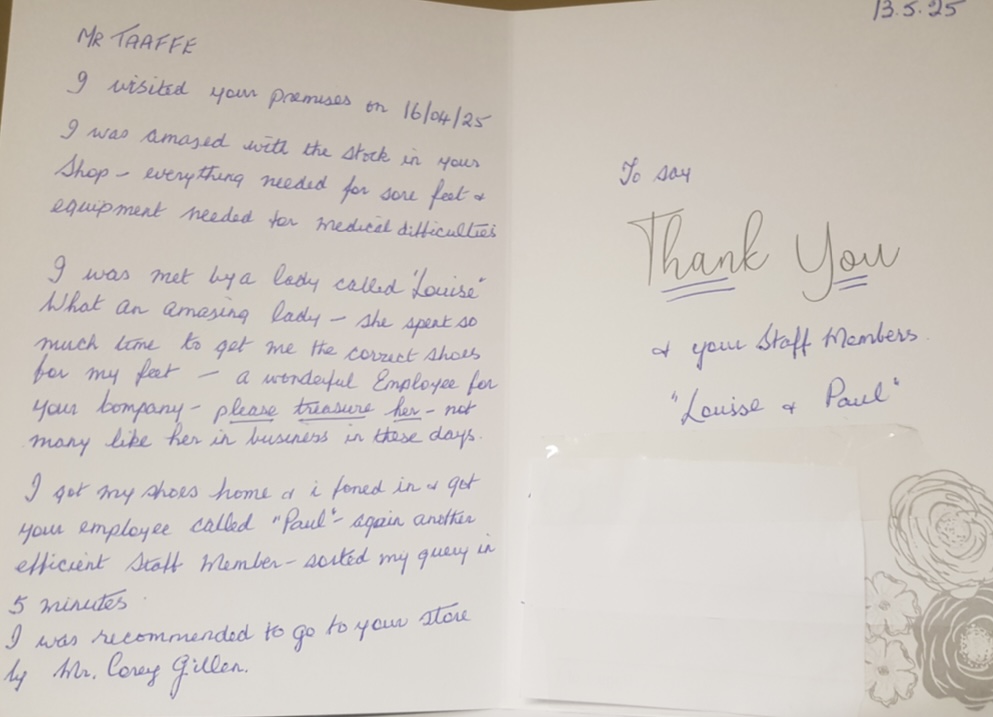 MR TAAFFE
I visited your premises on 16/04/25
I was amazed with the stock in your
Shop - everything needed for sore feet &
equipment needed for medical difficulties
I was met by a lady called "Louise"
What an amazing lady - she spent so
much time to get me the correct shoes
for my feet - a wonderful Employee for
your Company - please treasure her - not
many like her in business in these days.
I got my shoes home & i foned in & got
your employee called "Paul" - again another
efficient Staff Member - sorted my query in
5 minutes.
I was recommended to go to your store
by Mr. Corey Gillen.
13.5.25
To say
Thank You
& your Staff Members.
"Louise & Paul"